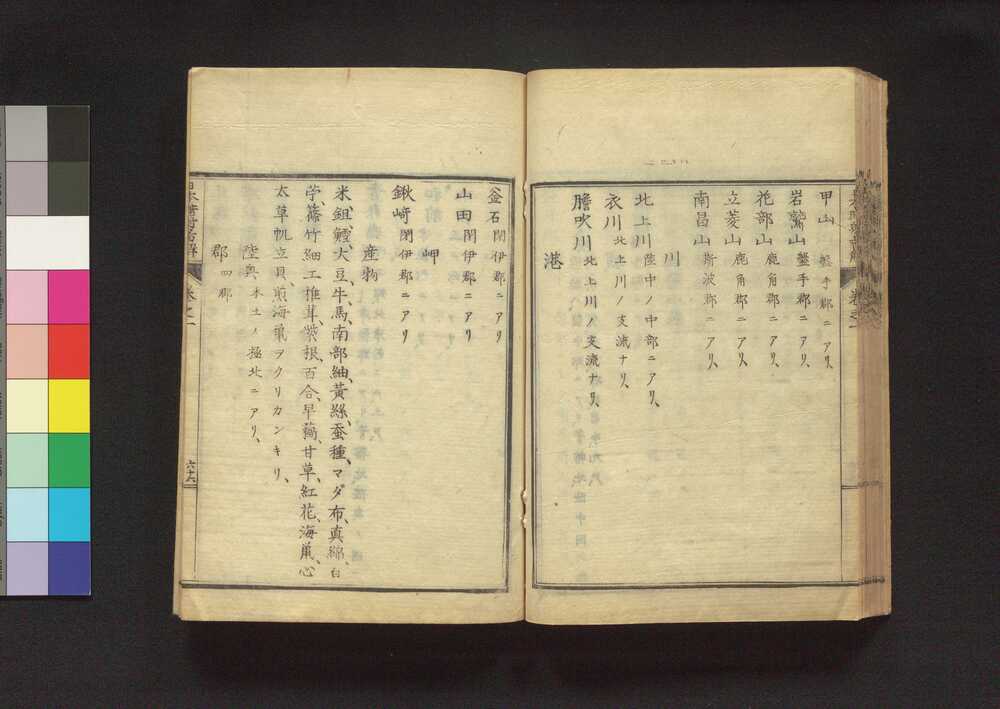 甲山 盤手郡ニアリ、
岩鷲山 盤手郡ニアリ、
花部山 鹿角郡ニアリ、
立菱山 鹿角郡ニアリ、
南昌山 斯波郡ニアリ、
川
北上川 陸中ノ中部ニアリ、
衣川 北上川ノ支流ナリ、
膽吹川 北上川ノ支流ナリ、
港
釜石 閉伊郡ニアリ
山田 閉伊郡ニアリ
岬
鍬﨑 閉伊郡ニアリ
産物
米、鉏、鱈、大豆、牛、馬、南部紬、黃絲、蚕種、マダ布、真綿、白
苧、篠竹細工、椎茸、紫根、百合、早蕨、甘草、紅花、海鼡、心
太草、帆立貝、煎海鼡、ヲクリカンキリ、
陸奥 本土ノ極北ニアリ、
郡 四郡
巻之二
六十六